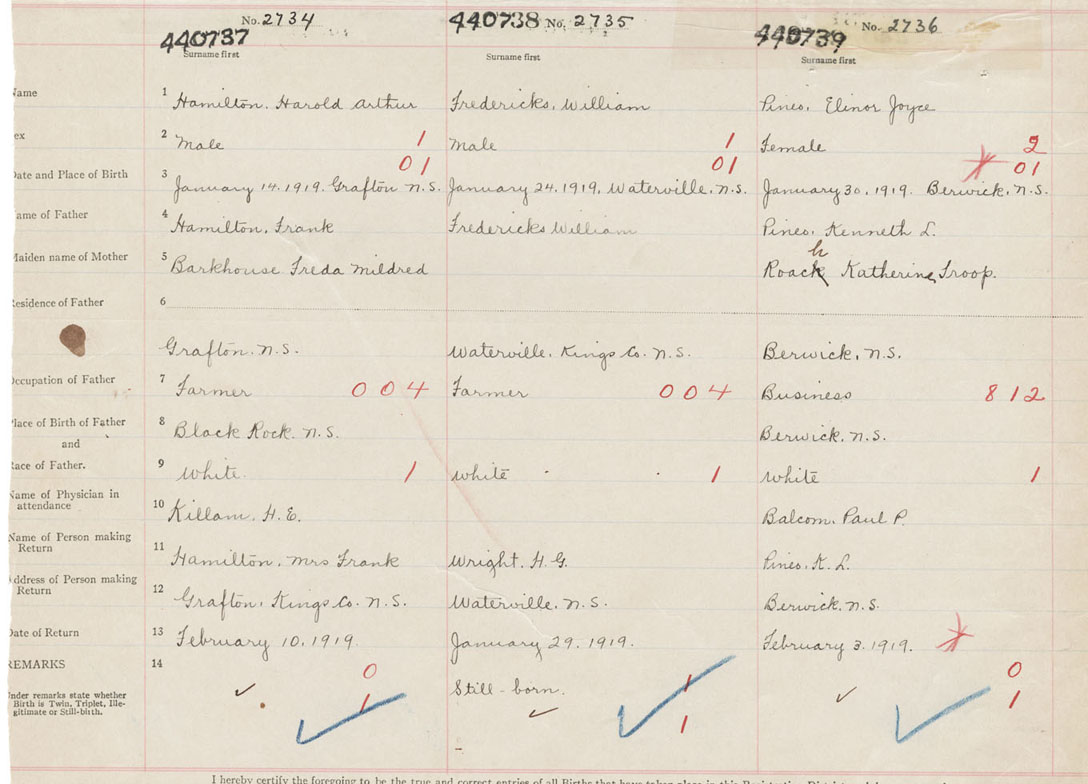 No. 2734 440738 No. 2735 No. 2736
440737 440739
Surname first Surname first Surname first
Name 1 Hamilton, Harold Arthur Fredericks, William Pineo, Elinor Joyce
ex 2 Male 1 Male 1 Female 2
01 01 01
Date and Place of Birth 3 January 14. 1919. Grafton N.S. January 24. 1919, Waterville, N.S. January 30, 1919. Berwick, N.S.
ame of Father 4 Hamilton, Frank Fredericks William Pineo, Kenneth L.
h
Maiden name of Mother 5 Barkhouse Freda Mildred Roack Katherine Troop.
Residence of Father 6
Grafton. N.S. Waterville, Kings Co. N.S. Berwick, N.S.
Occupation of Father 7 Farmer 004 Farmer 004 Business 812
Place of Birth of Father 8 Black Rock. N.S. Berwick. N.S.
and
Race of Father. 9 White. 1 White 1 White 1
Name of Physician in
attendance 10 Killam, H.E. Balcom, Paul P.
Name of Person making
Return 11 Hamilton, Mrs Frank Wright. H.G. Pineo, K.L.
Address of Person making
Return 12 Grafton, Kings Co. N.S. Waterville, N.S. Berwick, N.S.
Date of Return 13 February 10, 1919. January 29. 1919. February 3. 1919.
REMARKS 14 0 0
Under remarks state whether
Birth is Twin, Triplet, Ille-
gitimate or Still-birth.
1 Still-born. 1 1
1
I hereby certify the foregoing to be the true and correct entries of all Births that have taken place in this Registration District